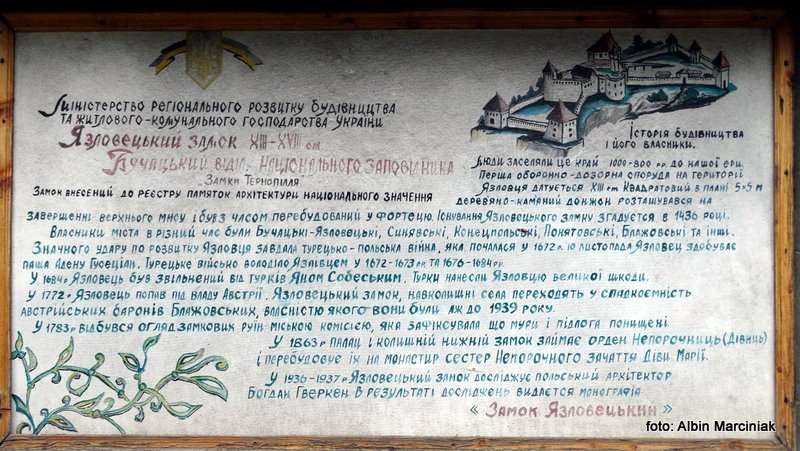 Міністерство регіонального розвитку будівництва
та житлового-комунального господарства України
Язловецький замок XIII-XVIII ст
Бучацький відділ Національного заповідника
Замки Тернопілля
Замок внесений до реєстру памяток архітектури національного значення
Історія будівництва
і його власники.
Люди заселяли це край 1000-800 рр. до нашої ери.
Перша оборонно-дозорна споруда на території
Язловця датується XIII ст. Квадратовий в плані 5×5 м
деревяно-камяний донжон розташувався на
завершенні верхнього мису і був з часом перебудований у фортецю. Існування Язловецького замку згадується в 1436 році.
Власники міста в різний час були Бучацькі-Язловецькі, Синявські, Конецпольські, Понятовські, Блажовські та інші.
Значного удару по розвитку Язловця завдала турецько-польська війна, яка почалася у 1672 р. 10 листопада Язловец здобуває
паша Адену Гюсеціан. Турецьке військо володіло Язлівцем у 1672-1673 рр. та 1676-1684 рр.
У 1684 р Язловець був звільнений від турків Яном Собеським. Турки нанесли Язловцю великої шкоди.
У 1772 р Язловець попав під владу Австрії. Язловецький замок, навколишні села переходять у спадкоємність
австрійських баронів Блажовських, власністю якого вони були аж до 1939 року.
У 1783 р відбувся огляд замкових руїн міською комісією, яка зафіксувала що мури і підлога понищені.
У 1863 р палац і колишній нижній замок займає орден Непорочниць (Дівиць)
і перебудовує їх на монастир сестер Непорочного Зачаття Діви Марії.
У 1936-1937 р Язловецький замок досліджує польський архітектор
Богдан Гверкен. В результаті досліджень видається монографія
« Замок Язловецький »
foto: Albin Marciniak